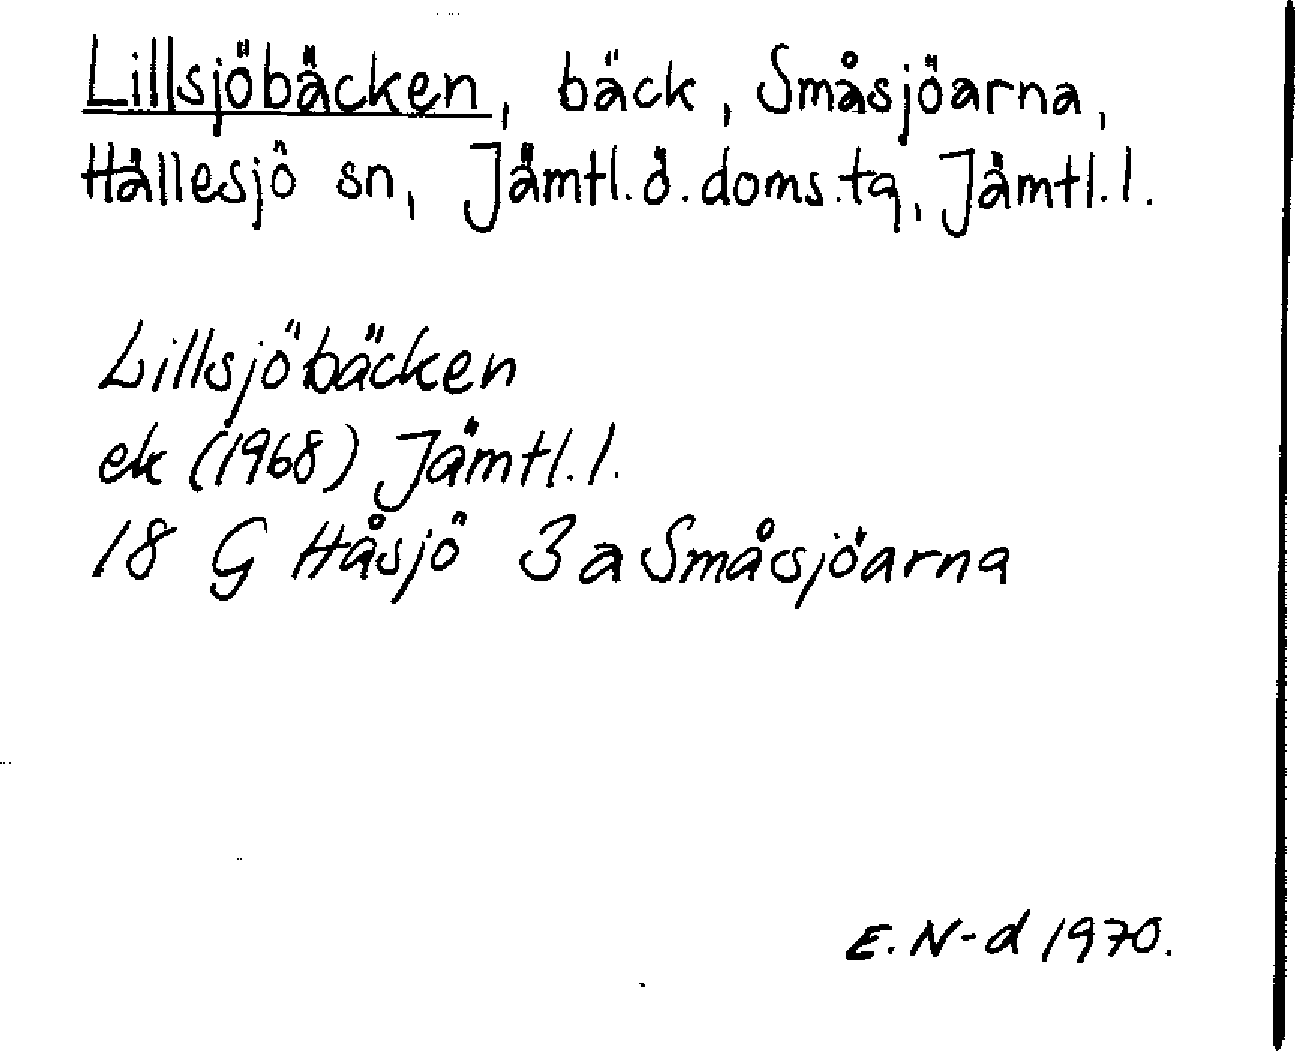 Lillsjöbäcken, bäck, Småsjöarna,
Hällesjö sn, Jämtl.ö.doms.tg, Jämtl.l.
Lillsjöbäcken
ek (1968) Jämtl.l.
18 G Håsjö 3a Småsjöarna
E. N-d 1970.